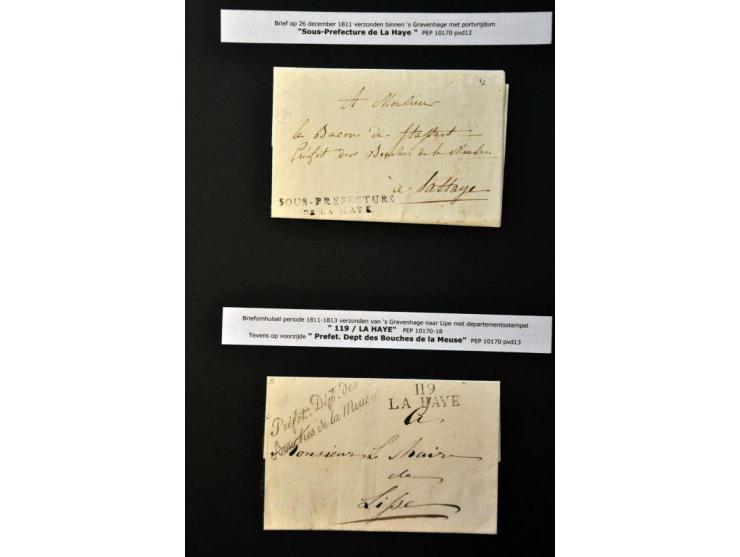 Brief op 26 december 1811 verzonden binnen 's Gravenhage met portvrijdom
"Sous-Prefecture de La Haye " PEP 10170 pvd12
12
A Monsieur
le Baron de Stassart
Préfet des Bouches de la Meuse
à Lahaye
SOUS-PREFECTURE
DE LA HAYE
Briefomhulsel periode 1811-1813 verzonden van 's Gravenhage naar Lipe met departementsstempel
" 119 / LA HAYE" PEP 10170-18
Tevens op voorzijde " Prefet. Dept des Bouches de la Meuse" PEP 10170 pvd13
Préfet. Dépt. des
Bouches de la Meuse
119
LA HAYE
A
Monsieur Le Maire
de
Lipe